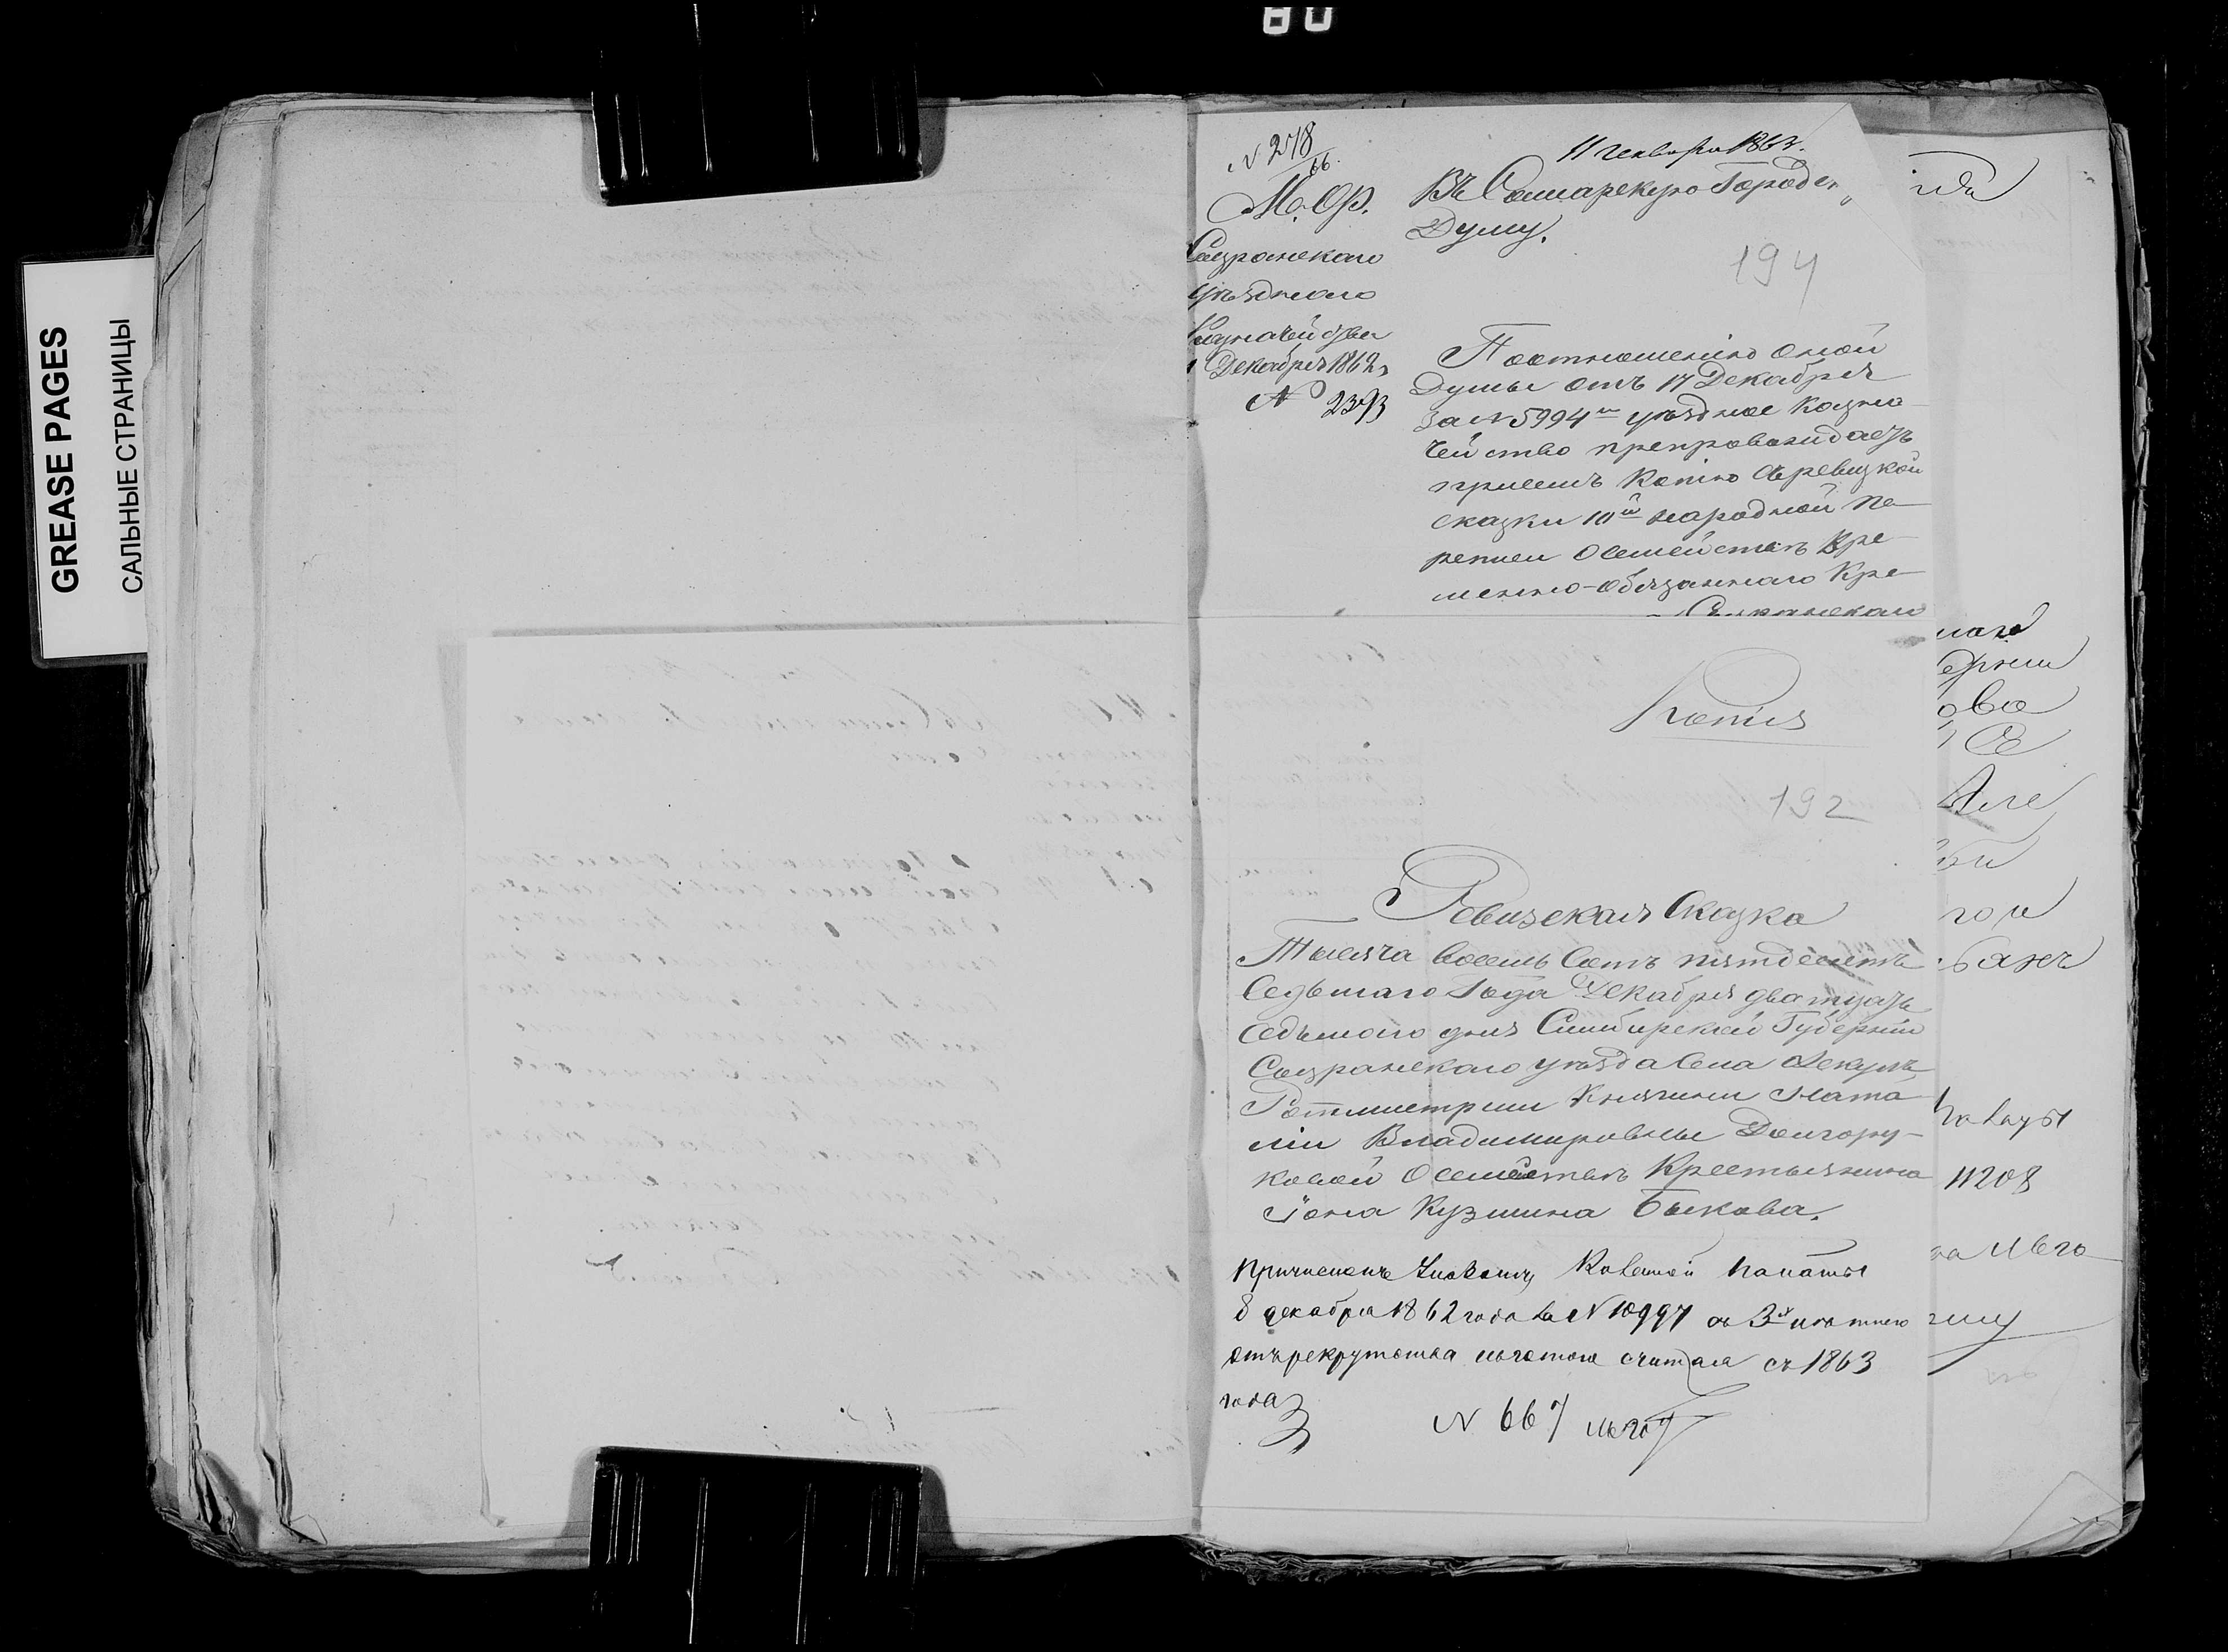 80
GREASE PAGES
САЛЬНЫЕ СТРАНИЦЫ
N 278/66
11 генваря 1863.
М. Ф.
Сызранскаго
уѣзднаго
Казначейства
Декабря 1862 г
№ 2393
Въ Самарскую Городск
Думу.
194
По отношенію оной
Думы отъ 17 Декабря
За N 5994 уѣздное Казна-
чейство препровождаетъ
при семъ Копію съ ревизкой
сказки 10й народной пе-
реписи о семействѣ Вре-
менно-обязаннаго Кре-
Сызранскаго
Копія
192
Ревизская Сказка
Тысяча восемь сотъ пятдесятъ
Седьмаго Года Декабря двацать
седьмого дня Симбирской Губерніи
Сызранскаго уѣзда Села
Ротмистрши Княгини Ната
ліи Владимировны Долгору-
ковой о семействѣ Крестьянина
Іона Кузмина Быкова.
Причисленъ Указомъ Казенной Палаты
8 декабря 1862 года за N 10997 съ 3х лѣтнею
отъ рекрутства льготою считая съ 1863
года
N 667
11208